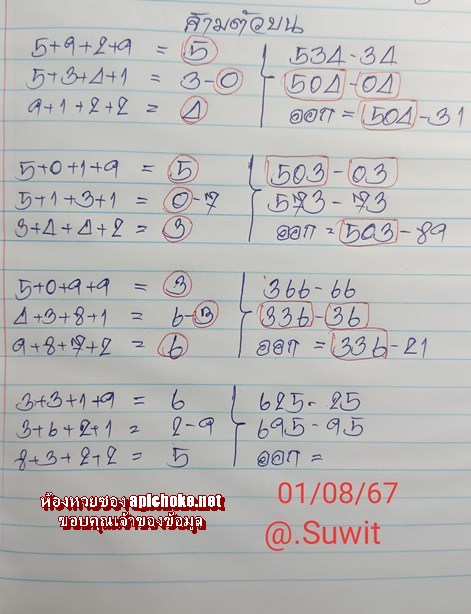 สามตัวบน
5+9+2+9 = 5 534-34
5+3+4+1 = 3-0 504-04
9+1+2+2 = 4 ออก = 504-31
5+0+1+9 = 5 503-03
5+1+3+1 = 0-7 573-73
3+4+4+2 = 3 ออก = 503-89
5+0+9+9 = 3 366-66
4+3+8+1 = 6-3 336-36
9+8+7+2 = 6 ออก = 336-21
3+3+1+9 = 6 625-25
3+6+2+1 = 2-9 695-95
8+3+2+2 = 5 ออก =
ห้องหวยซอง apichoke.net
ขอบคุณเจ้าของข้อมูล
01/08/67
@.Suwit